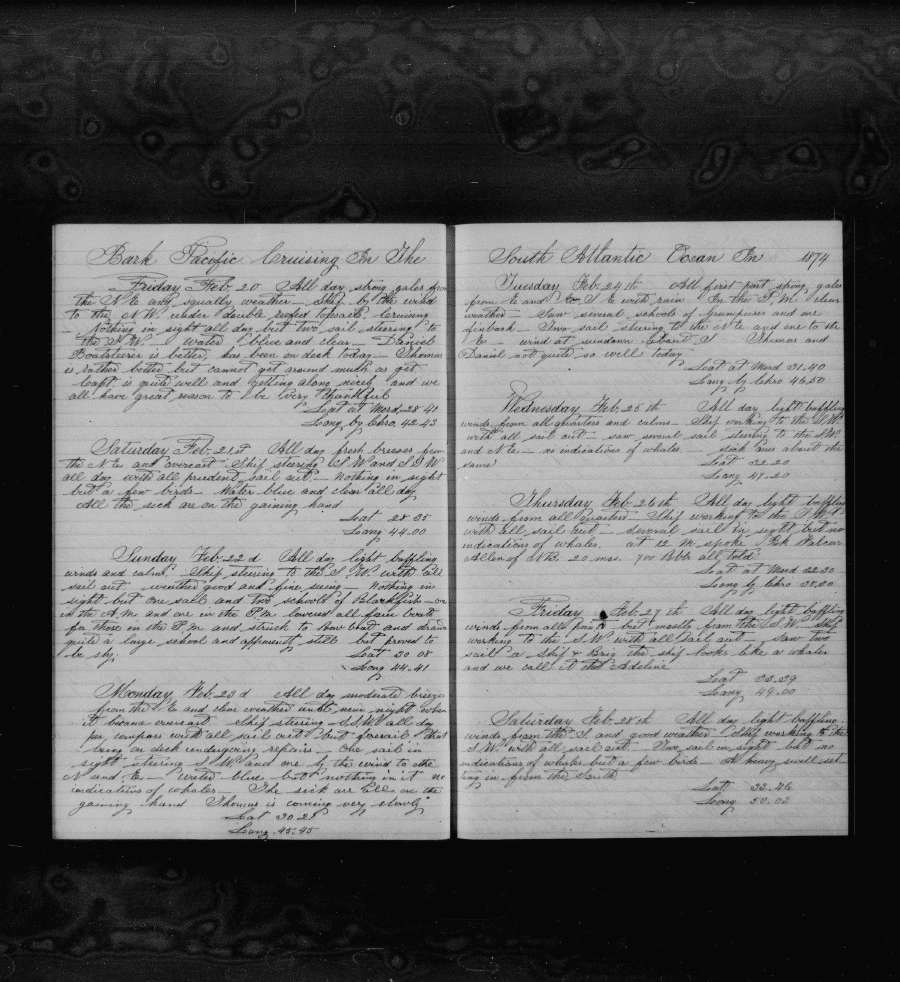 Bark Pacific Cruising In The
Friday Feb. 20 All day strong gales from
the N.E and squally weather - Ship by the wind
to the N.W. under double reefed topsails Cruising
- Nothing in sight all day but two sail steering to
the S.W. - Water blue and clear - Daniel
Boatsteerer is better, has been on deck today - Thomas
is rather better but cannot get around much as yet
Capt. is quite well and getting along nicely and we
all have great reason to be very thankful
Lat at Merd. 28-41
Long by Chro 42-43
Saturday Feb. 21st All day fresh breezes from
the N.E. and overcast Ship steering S.W and S.S.W
all day with all prudent sail out - Nothing in sight
but a few birds - Water blue and clear all day
All the sick are on the gaining hand
Lat 28-35
Long 44.00
Sunday Feb. 22d All day light baffling
winds and calms. Ship steering to the S.W. with all
sail out - weather good and fine swing - Nothing in
sight but one sail and two schools of Blackfish - one
in the A.M and one in the P.M. lowered all four boats
for those in the P.M and struck to bow boat and
quite a large school and apparently still but proved to
be shy.
Lat 30 08
Long 44.41
Monday Feb. 23d All day moderate breezes
from the N.E and clear weather until near night when
it became overcast Ship steering S.S.W. all day
per compass with all sail out but foresail that
being on deck undergoing repairs - One sail in
sight steering S.W and one by the wind to the
N and E. - Water blue but nothing in it no
indications of whales - The sick are all on the
gaining hand Thomas is coming very slowly
Lat 30-28
Long 45-45
South Atlantic Ocean In 1874
Tuesday Feb. 24th All first part strong gales
from E and S E with rain In the P.M. clear
weather - Saw several schools of Grampuses and one
finback - Two sail steering to the N E and one to the
E - wind at sundown about S Thomas and
Daniel not quite so well today
Lat at Merd 31.40
Long by Chro 46.50
Wednesday Feb. 25th All day light baffling
winds from all quarters and calms - Ship working to the S.W.
with all sail out - saw several sail steering to the S.W.
and N.E. - no indications of whales - sick ones about the
same
Lat 32.20
Long 47-20
Thursday Feb. 26th All day light baffling
winds from all quarters Ship working to the S.W.
with all sail out - several sail in sight but no
indications of whales. at 12 M. spoke Bark Falcon
Allen of N.B. 20 mos. 700 Bbls all told
Lat at Merd 32.30
Long by Chro
Friday Feb. 27th All day light baffling
winds from all points but mostly from the S.W. Ship
working to the S.W. with all sail out - Saw two
sail a Ship & Brig the ship looks like a whaler
and we call it the Adeline
Lat 33.39
Long 49.00
Saturday Feb. 28th All day light baffling
winds from the S and good weather - Ship working to the
S.W. with all sail out. Two sail in sight but no
indications of whales but a few birds - A heavy swell set
ting in from the South
Lat 33.46
Long 50.03